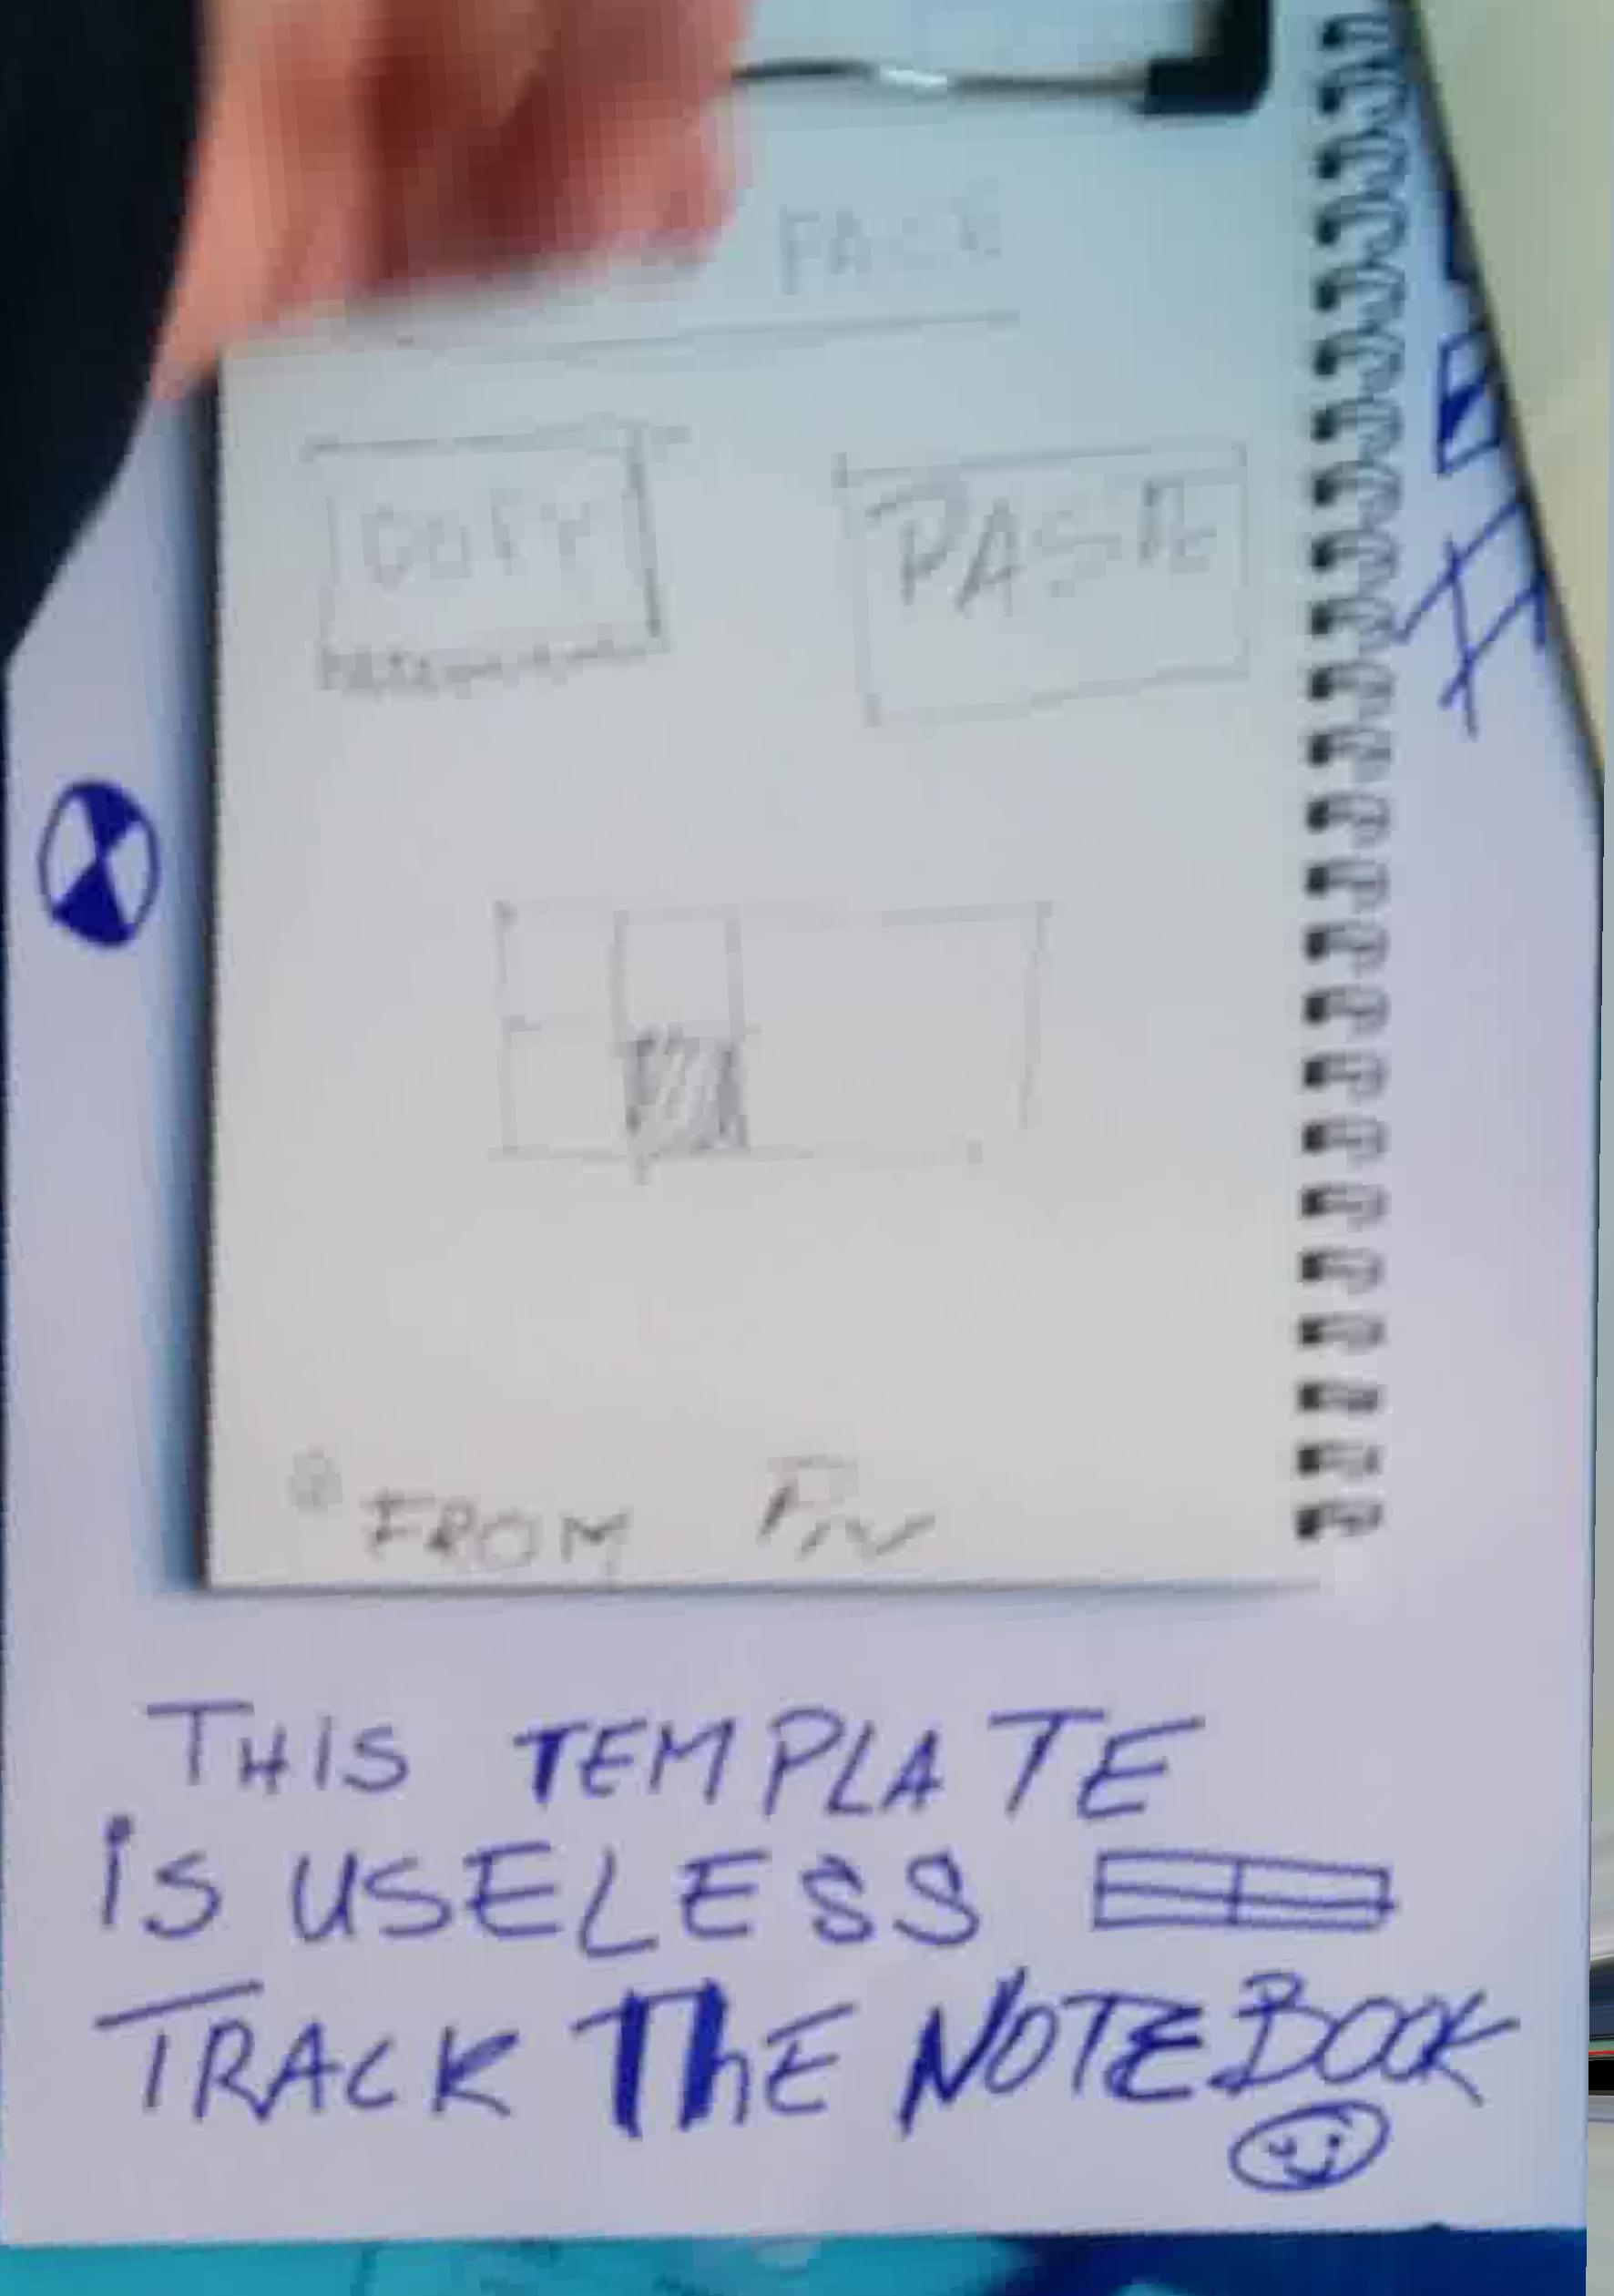 FACE
COPY PASTE
FROM
THIS TEMPLATE
iS USELESS
TRACK ThE NOTEBOOK